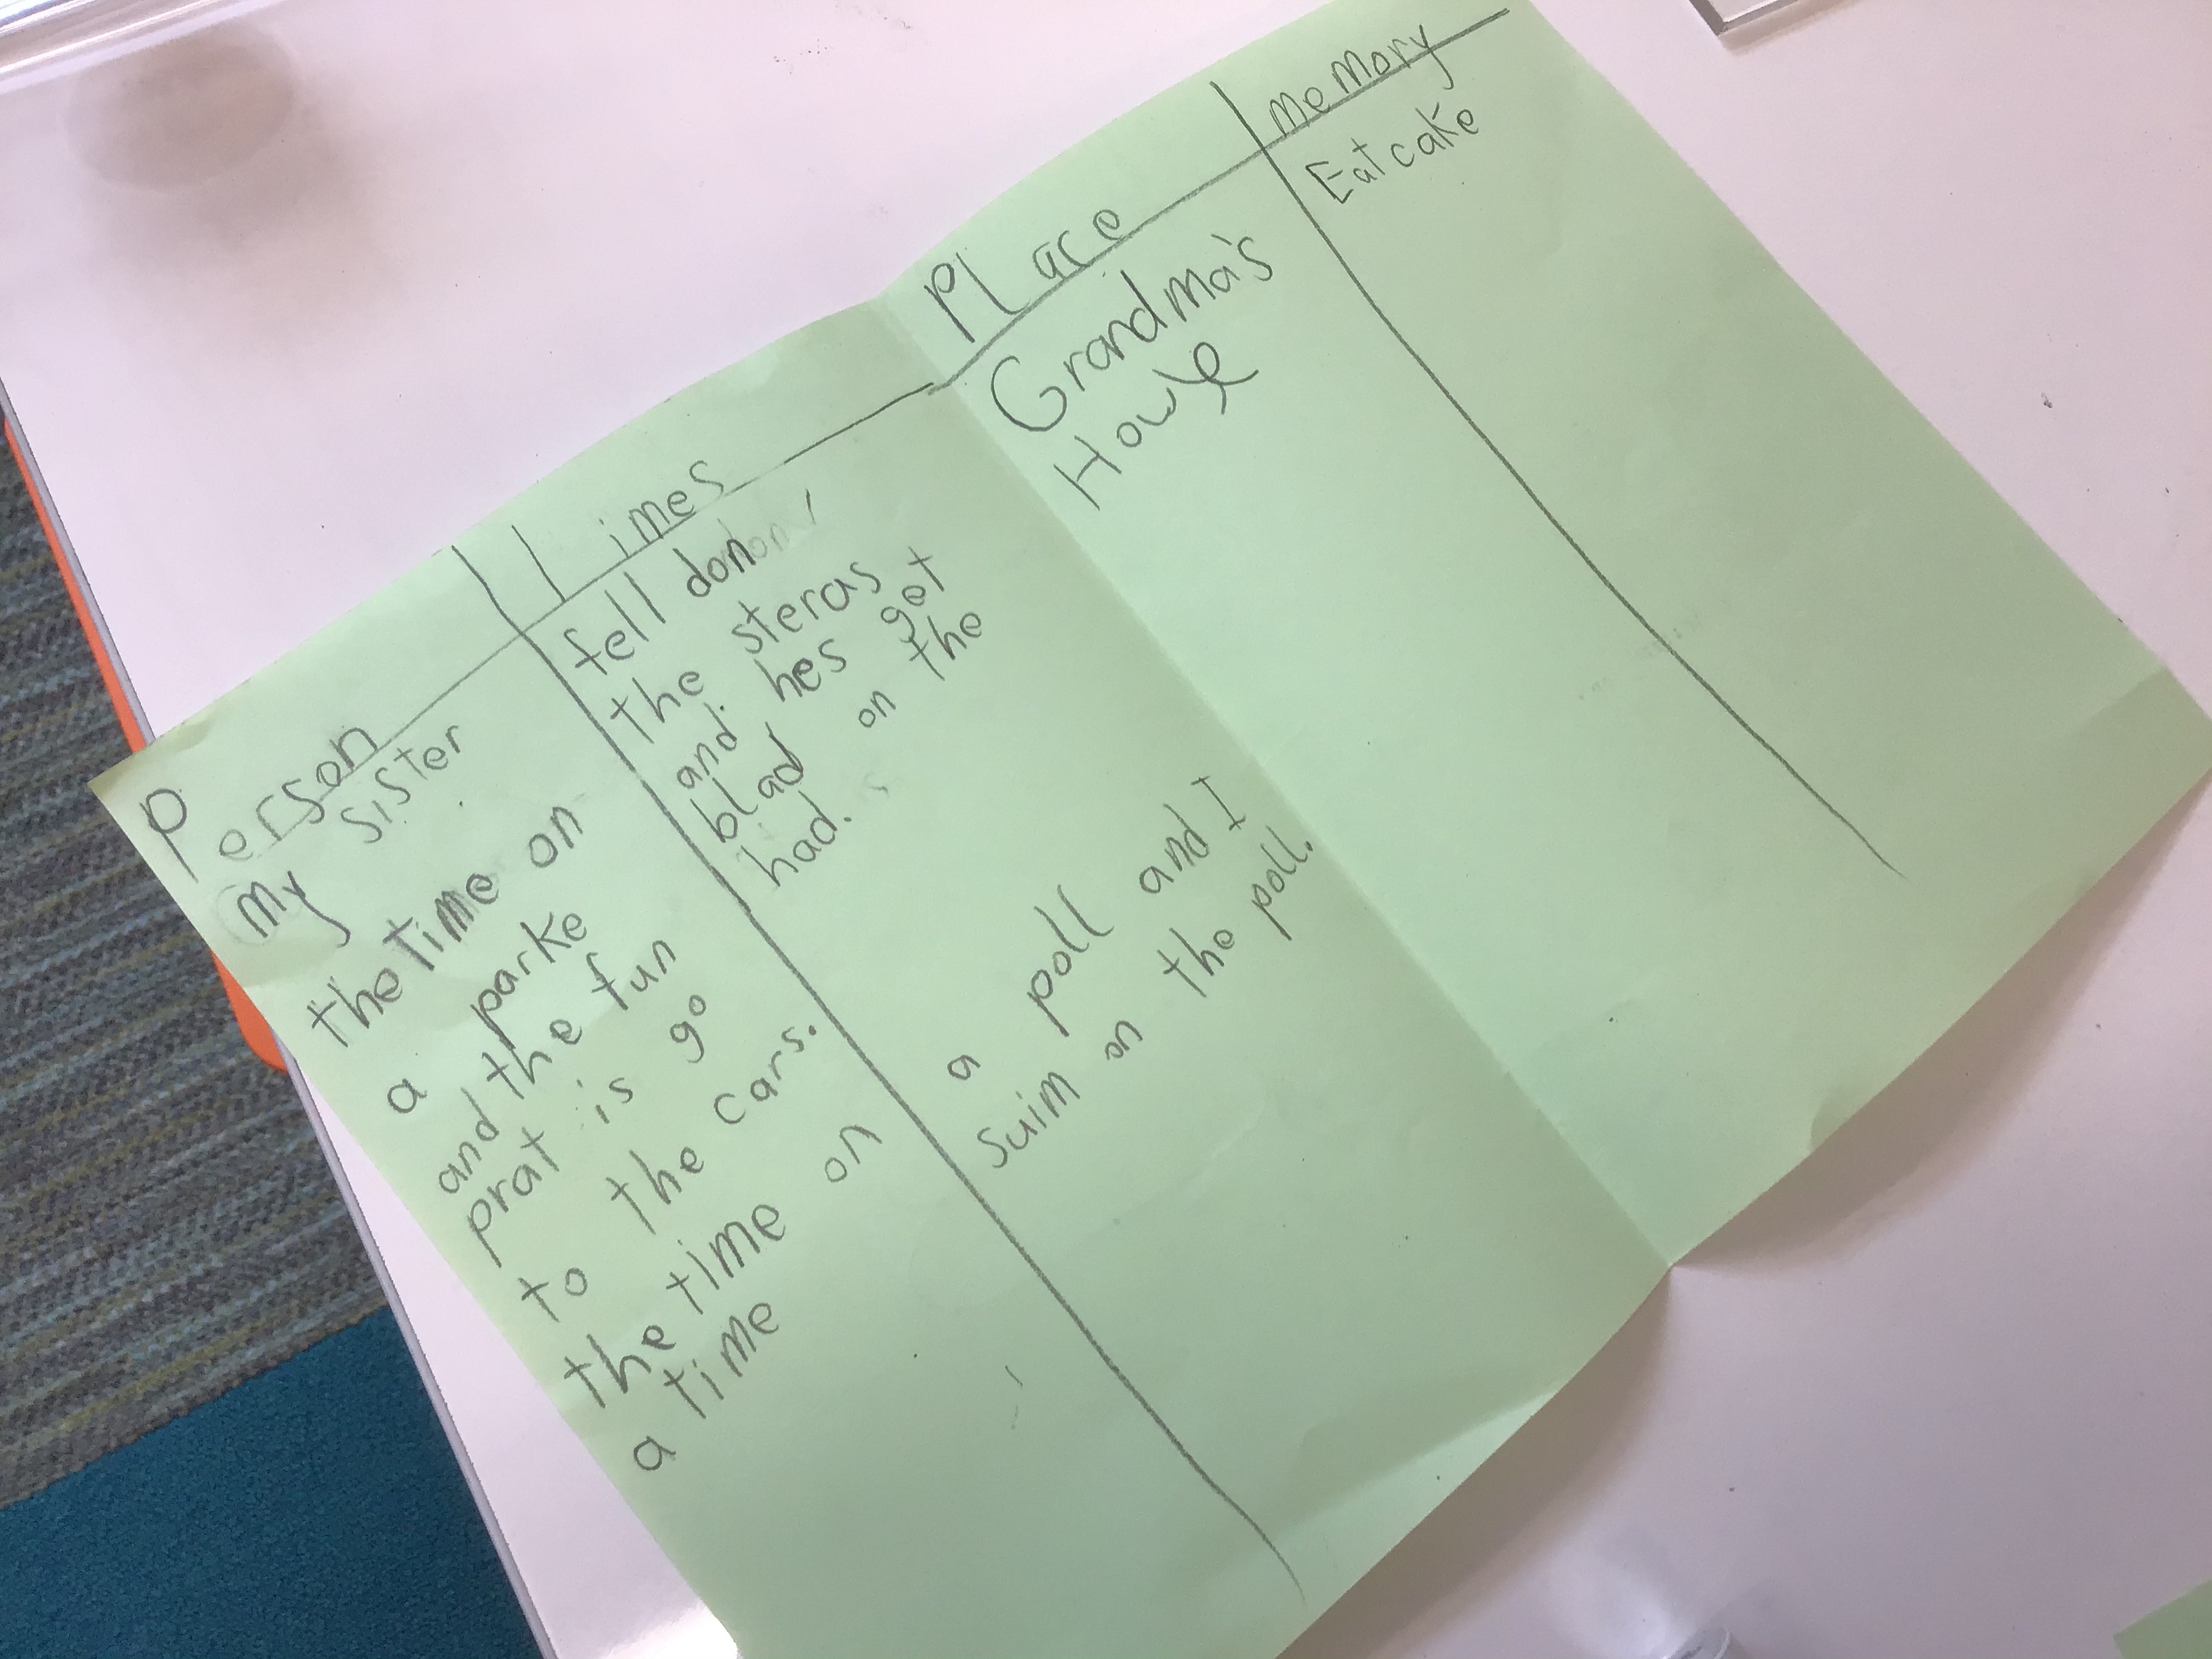 Person
My sister
the time on
a parke
and the fun
prat is go
to the cars.
the time on
a time
Times
fell don
the steras
and hes get
blad on the
had.
a poll and I
suim on the poll.
PLace
Grandma's
House
memory
Eat cake